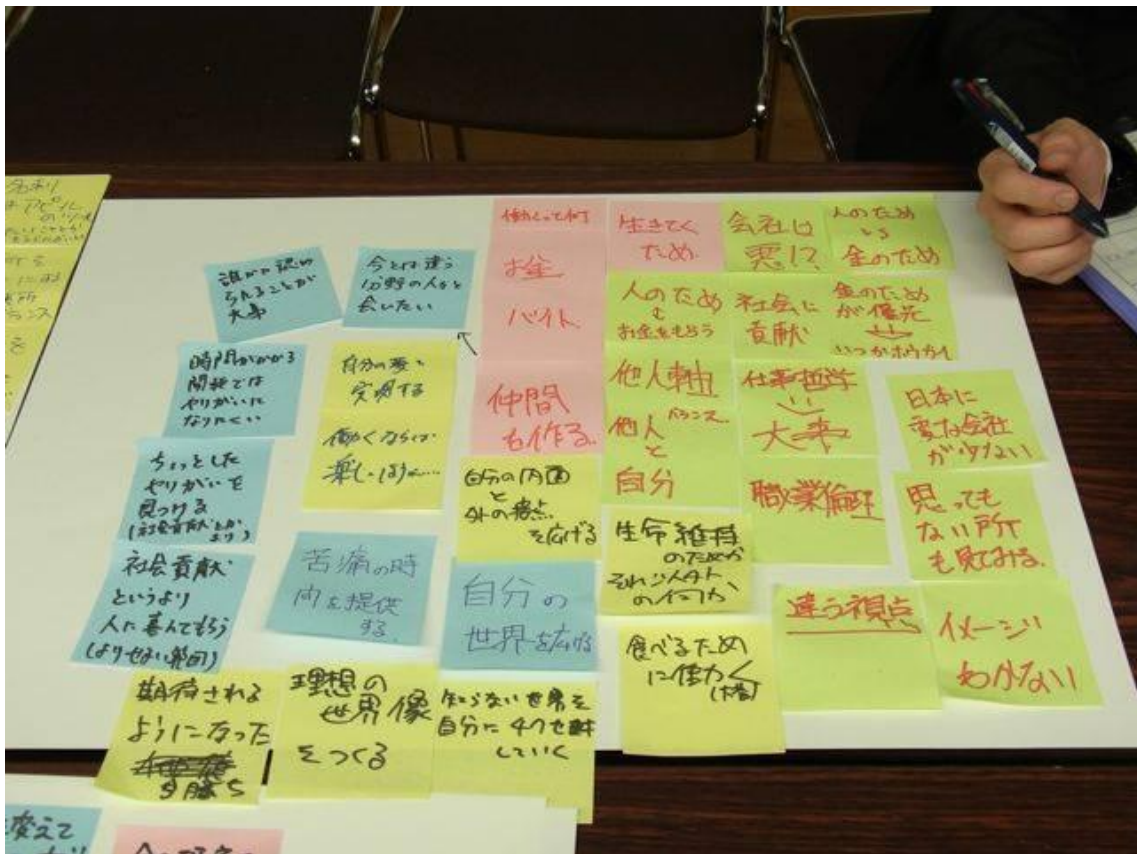 誰かに認め
られることが
大事
今とは違う
分野の人々と
会いたい
時間がかかる
開発では
やりがいに
なりにくい
自分の夢を
実現する
働くならば
楽しければ…
ちょっとした
やりがいを
見つける
(社会貢献とか
より)
社会貢献
というより
人に喜んでもらう
(よりせまい範囲)
苦痛の時
間を提供
する
期待される
ようになった
理想の
世界像
をつくる
知らない世界を
自分に
していく
働くって何
お金
バイト
仲間
も作る
自分の内面
と
外の接点
を広げる
自分の
世界を広げる
生きてく
ため
人のため
お金をもらう
他人軸
バランス
他人
と
自分
生命維持
のためか
それ以外
の何か
食べるため
に働く
会社は
悪!?
社会に
貢献
仕事哲学
大事
職業倫理
違う視点
人のため
vs
金のため
金のため
が優先
いつかホウカイ
日本に
変な会社
が少ない
思っても
ない所
も見てみる
イメージ
わかない